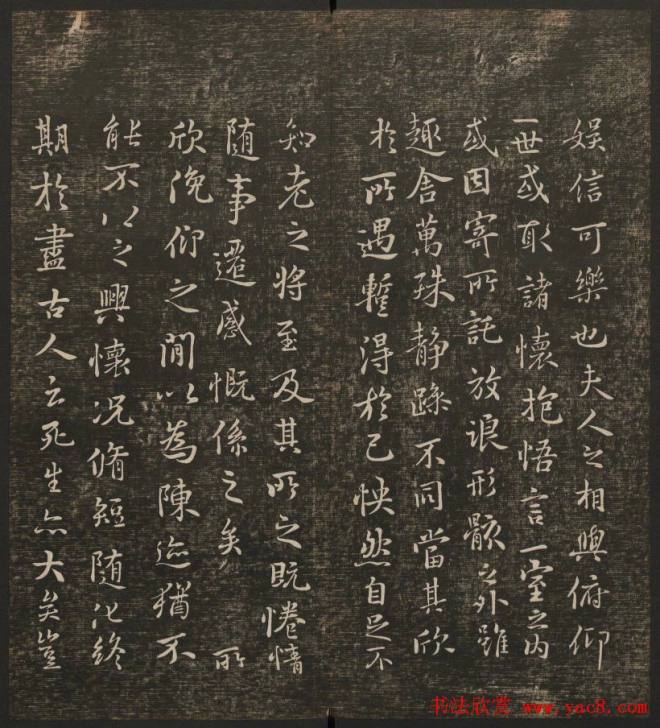 娱信可樂也夫人之相與俯仰
一世或取諸懷抱悟言一室之内
或因寄所託放浪形骸之外雖
趣舍萬殊静躁不同當其欣
於所遇蹔得於己怏然自足不
知老之将至及其所之既惓情
随事遷感慨係之矣 所
欣俛仰之閒以為陳迹猶不
能不以之興懷况脩短随化終
期於盡古人云死生亦大矣豈
书法欣赏 www.yac8.com